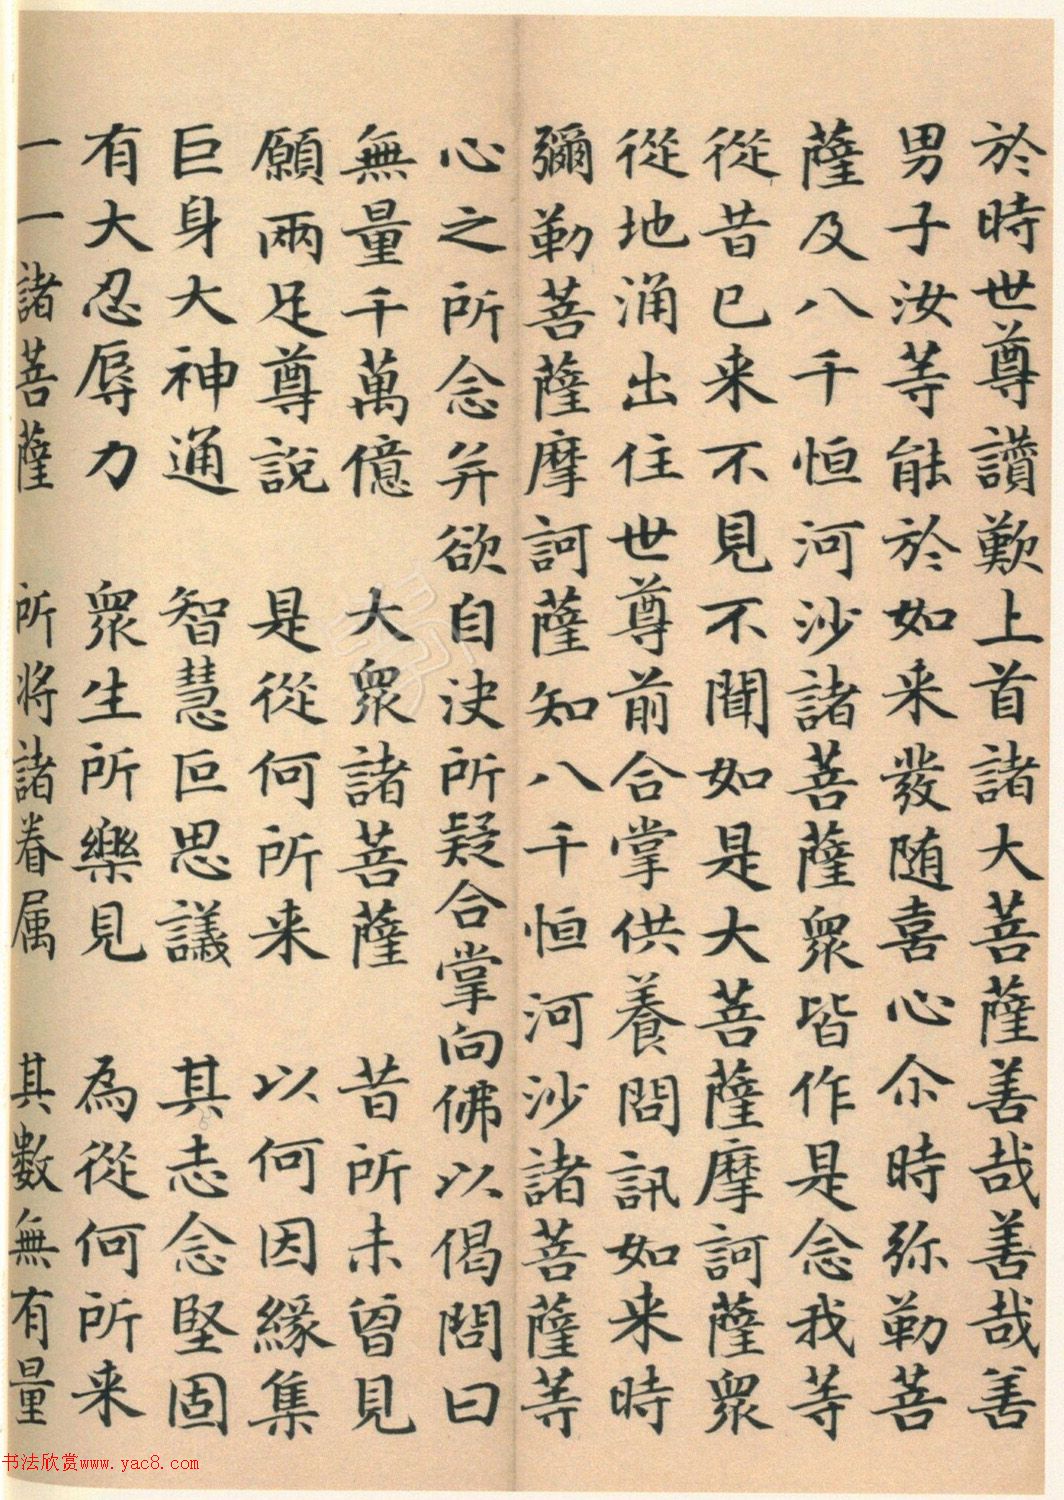 於時世尊讚歎上首諸大菩薩善哉善哉善
男子汝等能於如来發随喜心尒時弥勒菩
薩及八千恒河沙諸菩薩衆皆作是念我等
從昔已来不見不聞如是大菩薩摩訶薩衆
從地涌出住世尊前合掌供養問訊如来時
彌勒菩薩摩訶薩知八千恒河沙諸菩薩等
心之所念并欲自决所疑合掌向佛以偈問曰
無量千萬億 大衆諸菩薩 昔所未曾見
願兩足尊說 是從何所来 以何因緣集
巨身大神通 智慧叵思議 其志念堅固
有大忍辱力 衆生所樂見 為從何所来
一一諸菩薩 所将諸眷属 其數無有量
书法欣赏www.yac8.com